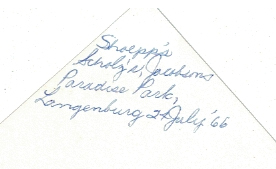 Shoepp's
Scholz's, Jacobsons
Paradise Park,
Langenburg 2 July '66